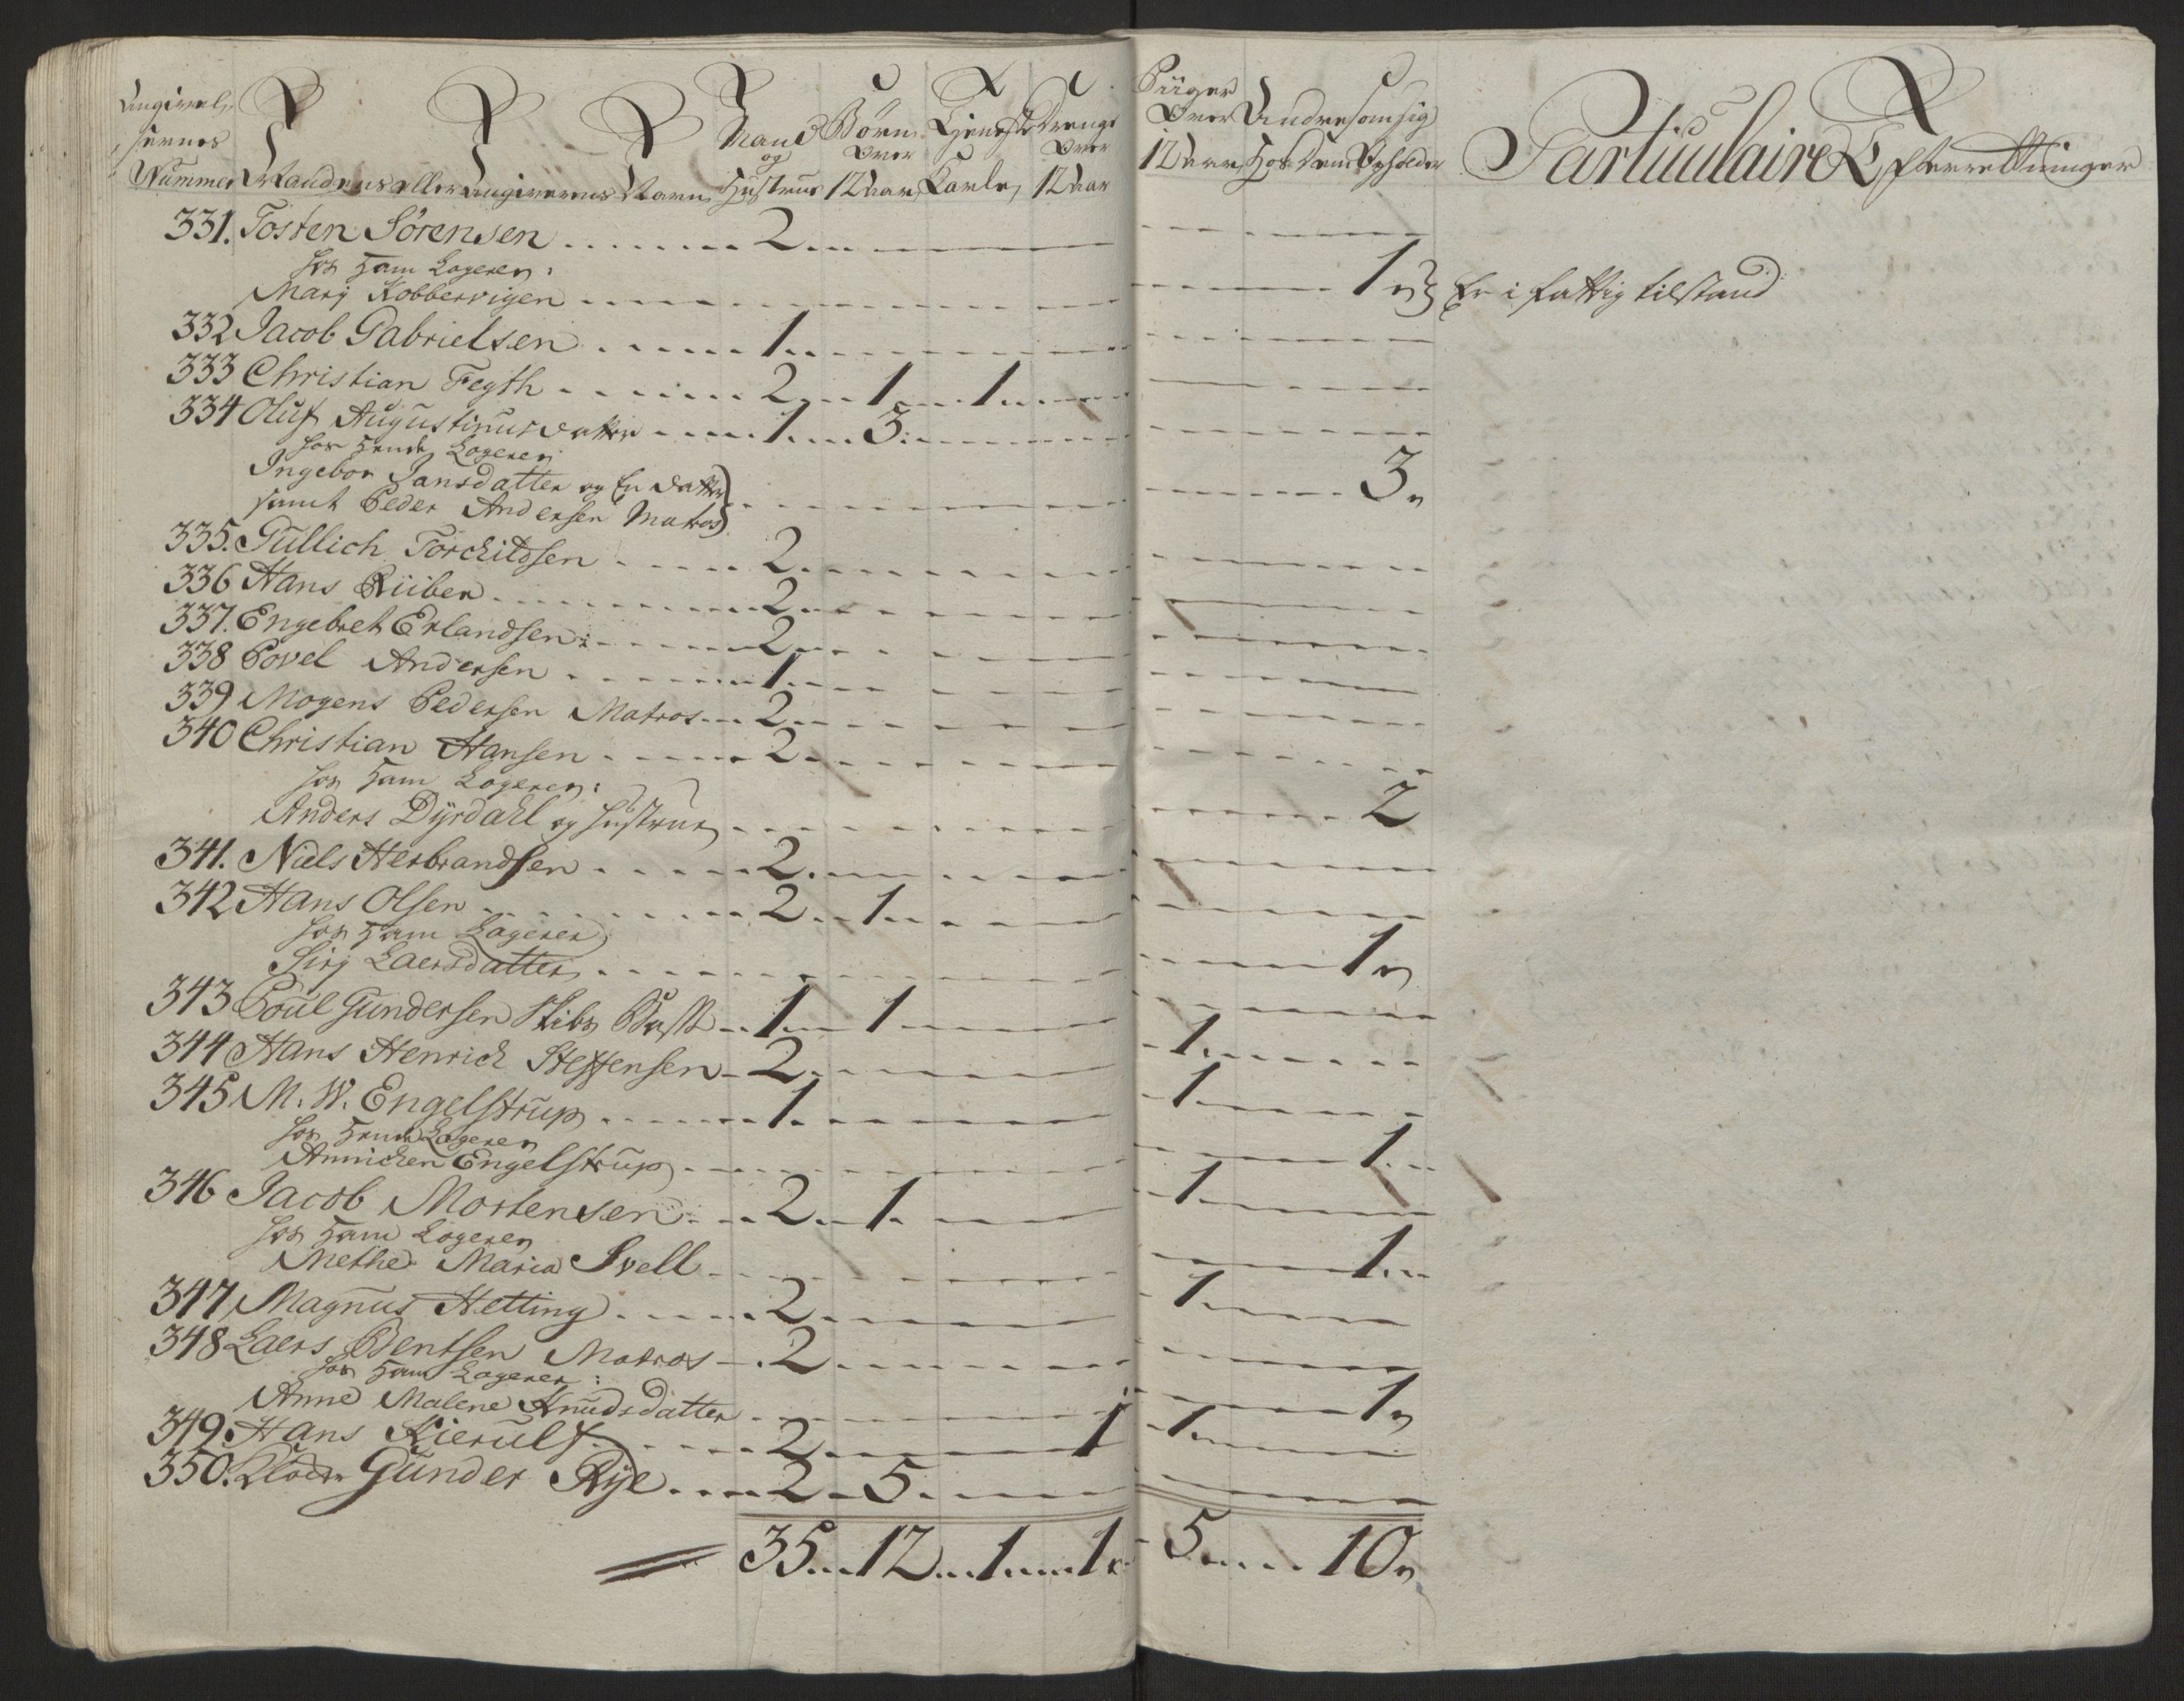 Angivel-
sernes
Nummer Mandens eller Angiverens Navn Mand og Hustrue Børn over 12 Aar Tjeneste Karle Drenge over 12 Aar Piiger over 12 Aar Andre som sig hos dem opholder Particulaire Efterretninger
331. Tosten Sörensen 2
hos ham Logerer:
Mary Kobbervigen 1 Er i fattig tilstand
332 Jacob Gabrielsen 1
333 Christian Fegth 2 1 1
334 Oluf Augustinusdatter 1 3
hos hende Logerer
Ingebor Jansdatter og En datter
samt Peder Andersen Matros 3
335. Gullich Torckildsen 2
336 Hans Riiber 2
337. Engebret Erlandsen 2
338 Povel Andersen 1
339 Mogens Pedersen Matros 2
340 Christian Hansen 2
hos ham Logerer:
Anders Dÿrdahl og Hustrue 2
341. Niels Herbrandsen 2
342 Hans Olsen 2 1
hos ham Logerer
Sirj Laersdatter 1
343 Poul Gundersen Skibs 1 1
344 Hans Henrick Steffensen 2 1
345 M. W. Engelstrup 1 1
hos hende Logerer
Annichen Engelstrup 1
346 Jacob Mortensen 2 1 1
hos ham Logerer
Methe Maria Svell 1
347 Magnus Hetting 2 1
348 Laers Bentsen Matros 2
hos ham Logerer:
Anne Malene Knudsdatter 1
349 Hans Kierulf 2 1 1
350. Gunder Rÿe 2 5
35 12 1 1 5 10